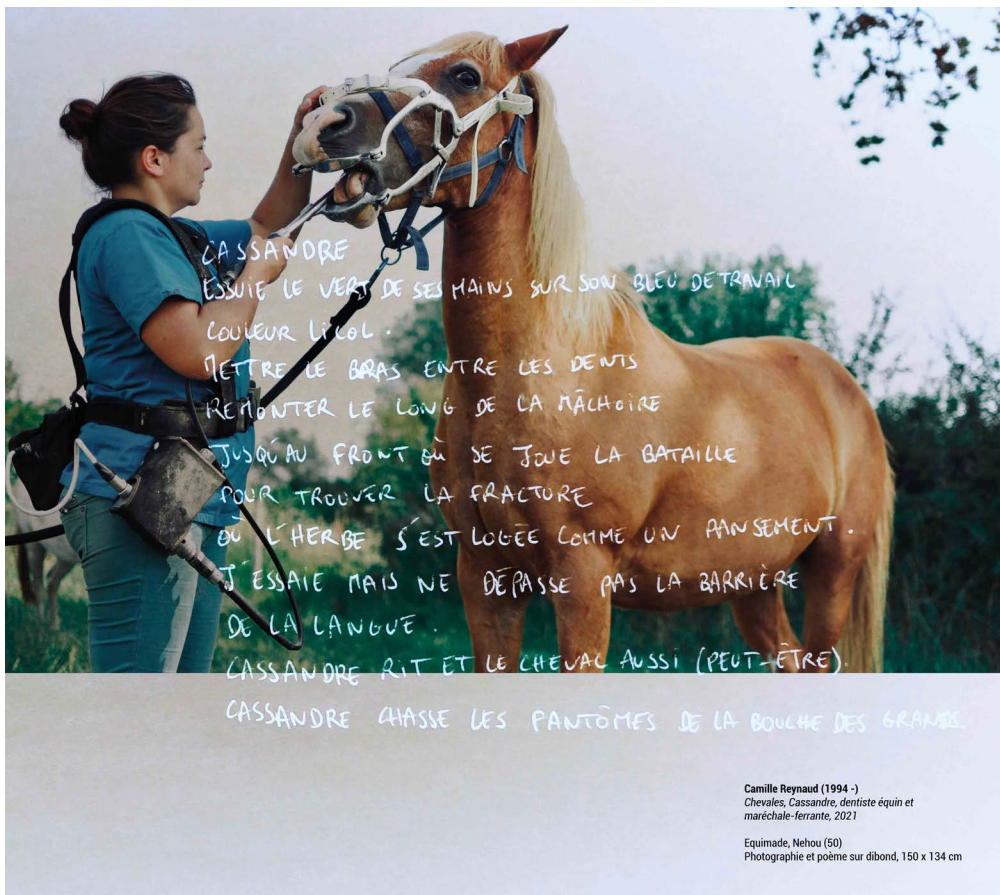 CASSANDRE
ESSUIE LE VERT DE SES MAINS SUR SON BLEU DE TRAVAIL
COULEUR LICOL.
METTRE LE BRAS ENTRE LES DENTS
REMONTER LE LONG DE LA MÂCHOIRE
JUSQU'AU FRONT OÙ SE JOUE LA BATAILLE
POUR TROUVER LA FRACTURE
OÙ L'HERBE S'EST LOGÉE COMME UN PANSEMENT.
J'ESSAIE MAIS NE DÉPASSE PAS LA BARRIÈRE
DE LA LANGUE.
CASSANDRE RIT ET LE CHEVAL AUSSI (PEUT-ÊTRE).
CASSANDRE CHASSE LES FANTÔMES DE LA BOUCHE DES GRANDS.
Camille Reynaud (1994 -)
Chevales, Cassandre, dentiste équin et
maréchale-ferrante, 2021
Equimade, Nehou (50)
Photographie et poème sur dibond, 150 x 134 cm